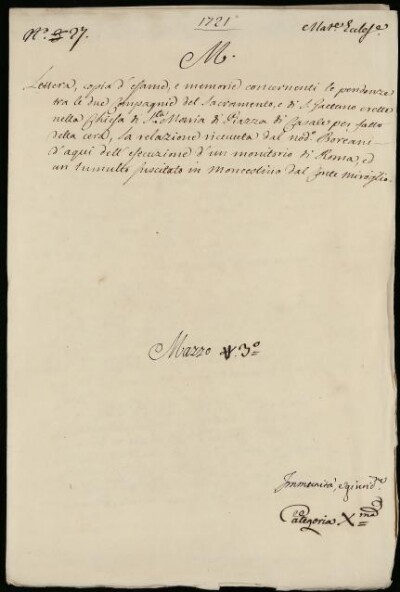 1721
N.º 27.
Mat.e Eccles.e
M.
Lettera, copia d'esame, e memorie concernenti le pendenze
tra le due Compagnie del Sacramento, e di S. Gaetano erette
nella Chiesa di S.ta Maria di Piazza di Casale per fatto
della cera, la relazione ricevuta dal nod.o Boreani
d'aqui dell'esecuzione d'un monitorio di Roma, ed
un tumulto suscitato in Moncestino dal Conte Miroglio.
Mazzo 3º
Immunità, e giurid.ne
Categoria X.ma